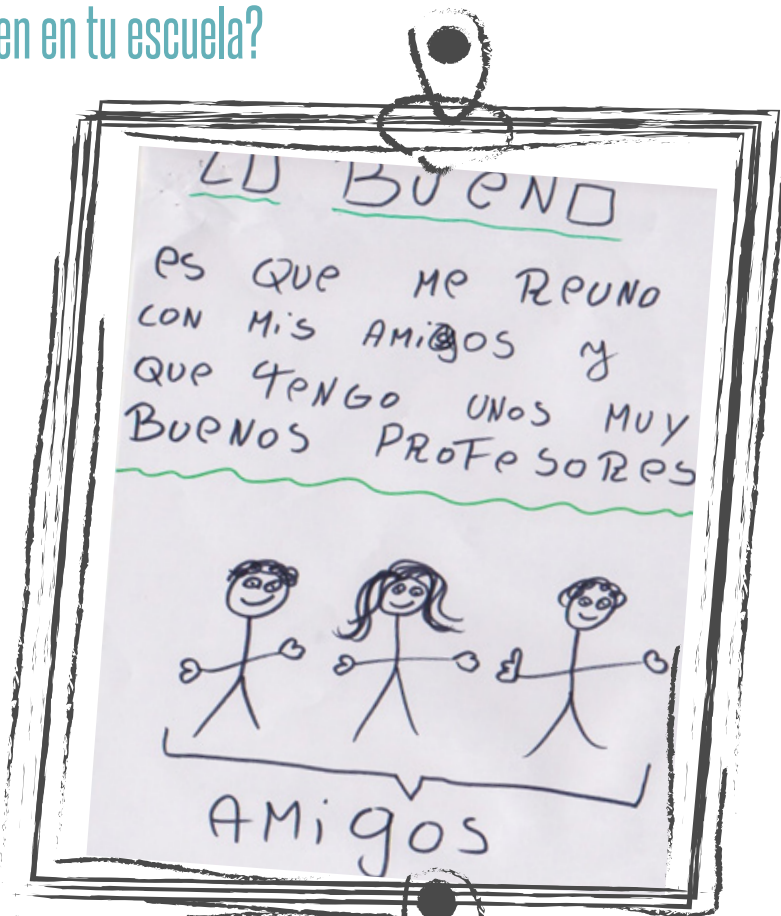 en en tu escuela?
LO BUENO
es QUe Me ReUNO
CON MiS AMigOS y
QUe TeNGO UNOS MUY
BUeNOS PROFeSORes
AMigOS